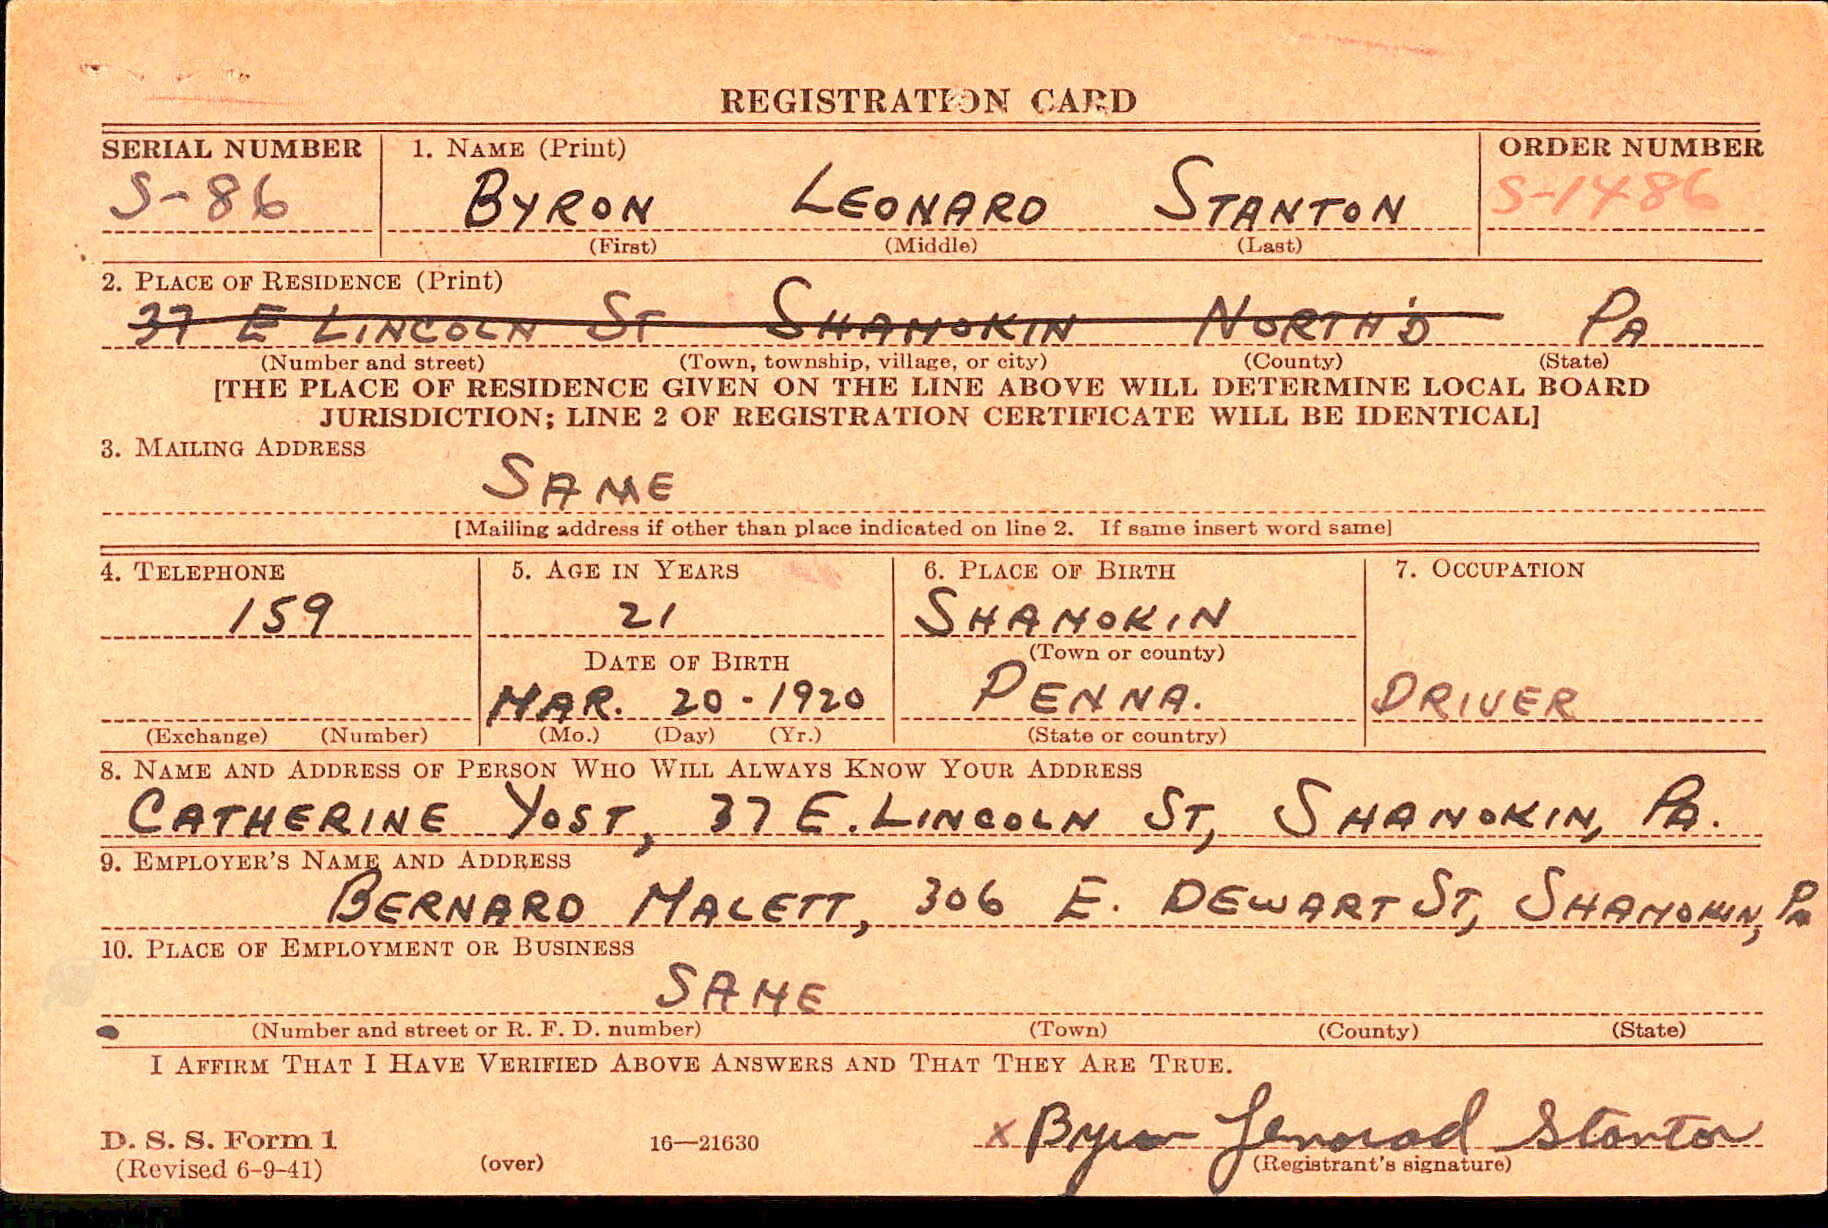 REGISTRATION CARD
SERIAL NUMBER 1. NAME (Print) ORDER NUMBER
S-86 BYRON LEONARD STANTON S-1486
(First) (Middle) (Last)
2. PLACE OF RESIDENCE (Print)
37 E LINCOLN ST SHAMOKIN NORTH'D PA
(Number and street) (Town, township, village, or city) (County) (State)
[THE PLACE OF RESIDENCE GIVEN ON THE LINE ABOVE WILL DETERMINE LOCAL BOARD
JURISDICTION; LINE 2 OF REGISTRATION CERTIFICATE WILL BE IDENTICAL]
3. MAILING ADDRESS
SAME
[Mailing address if other than place indicated on line 2. If same insert word same]
4. TELEPHONE 5. AGE IN YEARS 6. PLACE OF BIRTH 7. OCCUPATION
159 21 SHAMOKIN
DATE OF BIRTH (Town or county)
MAR. 20-1920 PENNA. DRIVER
(Exchange) (Number) (Mo.) (Day) (Yr.) (State or country)
8. NAME AND ADDRESS OF PERSON WHO WILL ALWAYS KNOW YOUR ADDRESS
CATHERINE YOST, 37 E. LINCOLN ST, SHAMOKIN, PA.
9. EMPLOYER'S NAME AND ADDRESS
BERNARD MALETT, 306 E. DEWART ST, SHAMOKIN, PA
10. PLACE OF EMPLOYMENT OR BUSINESS
SAME
(Number and street or R. F. D. number) (Town) (County) (State)
I AFFIRM THAT I HAVE VERIFIED ABOVE ANSWERS AND THAT THEY ARE TRUE.
x Byron Lenorad Stanton
D. S. S. Form 1 16—21630
(Revised 6-9-41) (over) (Registrant's signature)